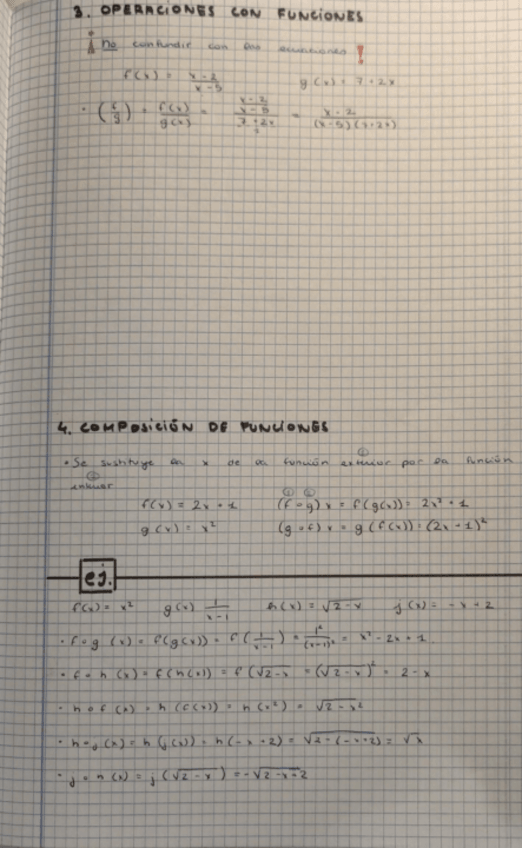 3. OPERACIONES CON FUNCIONES
¡ no confundir con las ecuaciones !
f(x) = (x-2)/(x-5)    g(x) = 7+2x
· (f/g) = f(x)/g(x) = ((x-2)/(x-5))/(7+2x) = (x-2)/((x-5)(7+2x))
4. COMPOSICIÓN DE FUNCIONES
· Se sustituye la x de la función exterior por la función
interior
f(x) = 2x+1    (f∘g) x = f(g(x)) = 2x²+1
g(x) = x²    (g∘f) x = g(f(x)) = (2x+1)²
ej.
f(x) = x²    g(x) 1/(x-1)    h(x) = √(2-x)    j(x) = -x+2
· f∘g (x) = f(g(x)) = f(1/(x-1)) = 1²/(x-1)² = x²-2x+1.
· f∘h (x) = f(h(x)) = f(√(2-x) = (√(2-x))² = 2-x
· h∘f (x) = h(f(x)) = h(x²) = √(2-x²)
· h∘j (x) = h(j(x)) = h(-x+2) = √(2-(-x+2)) = √x
· j∘h (x) = j(√(2-x)) = -√(2-x)+2